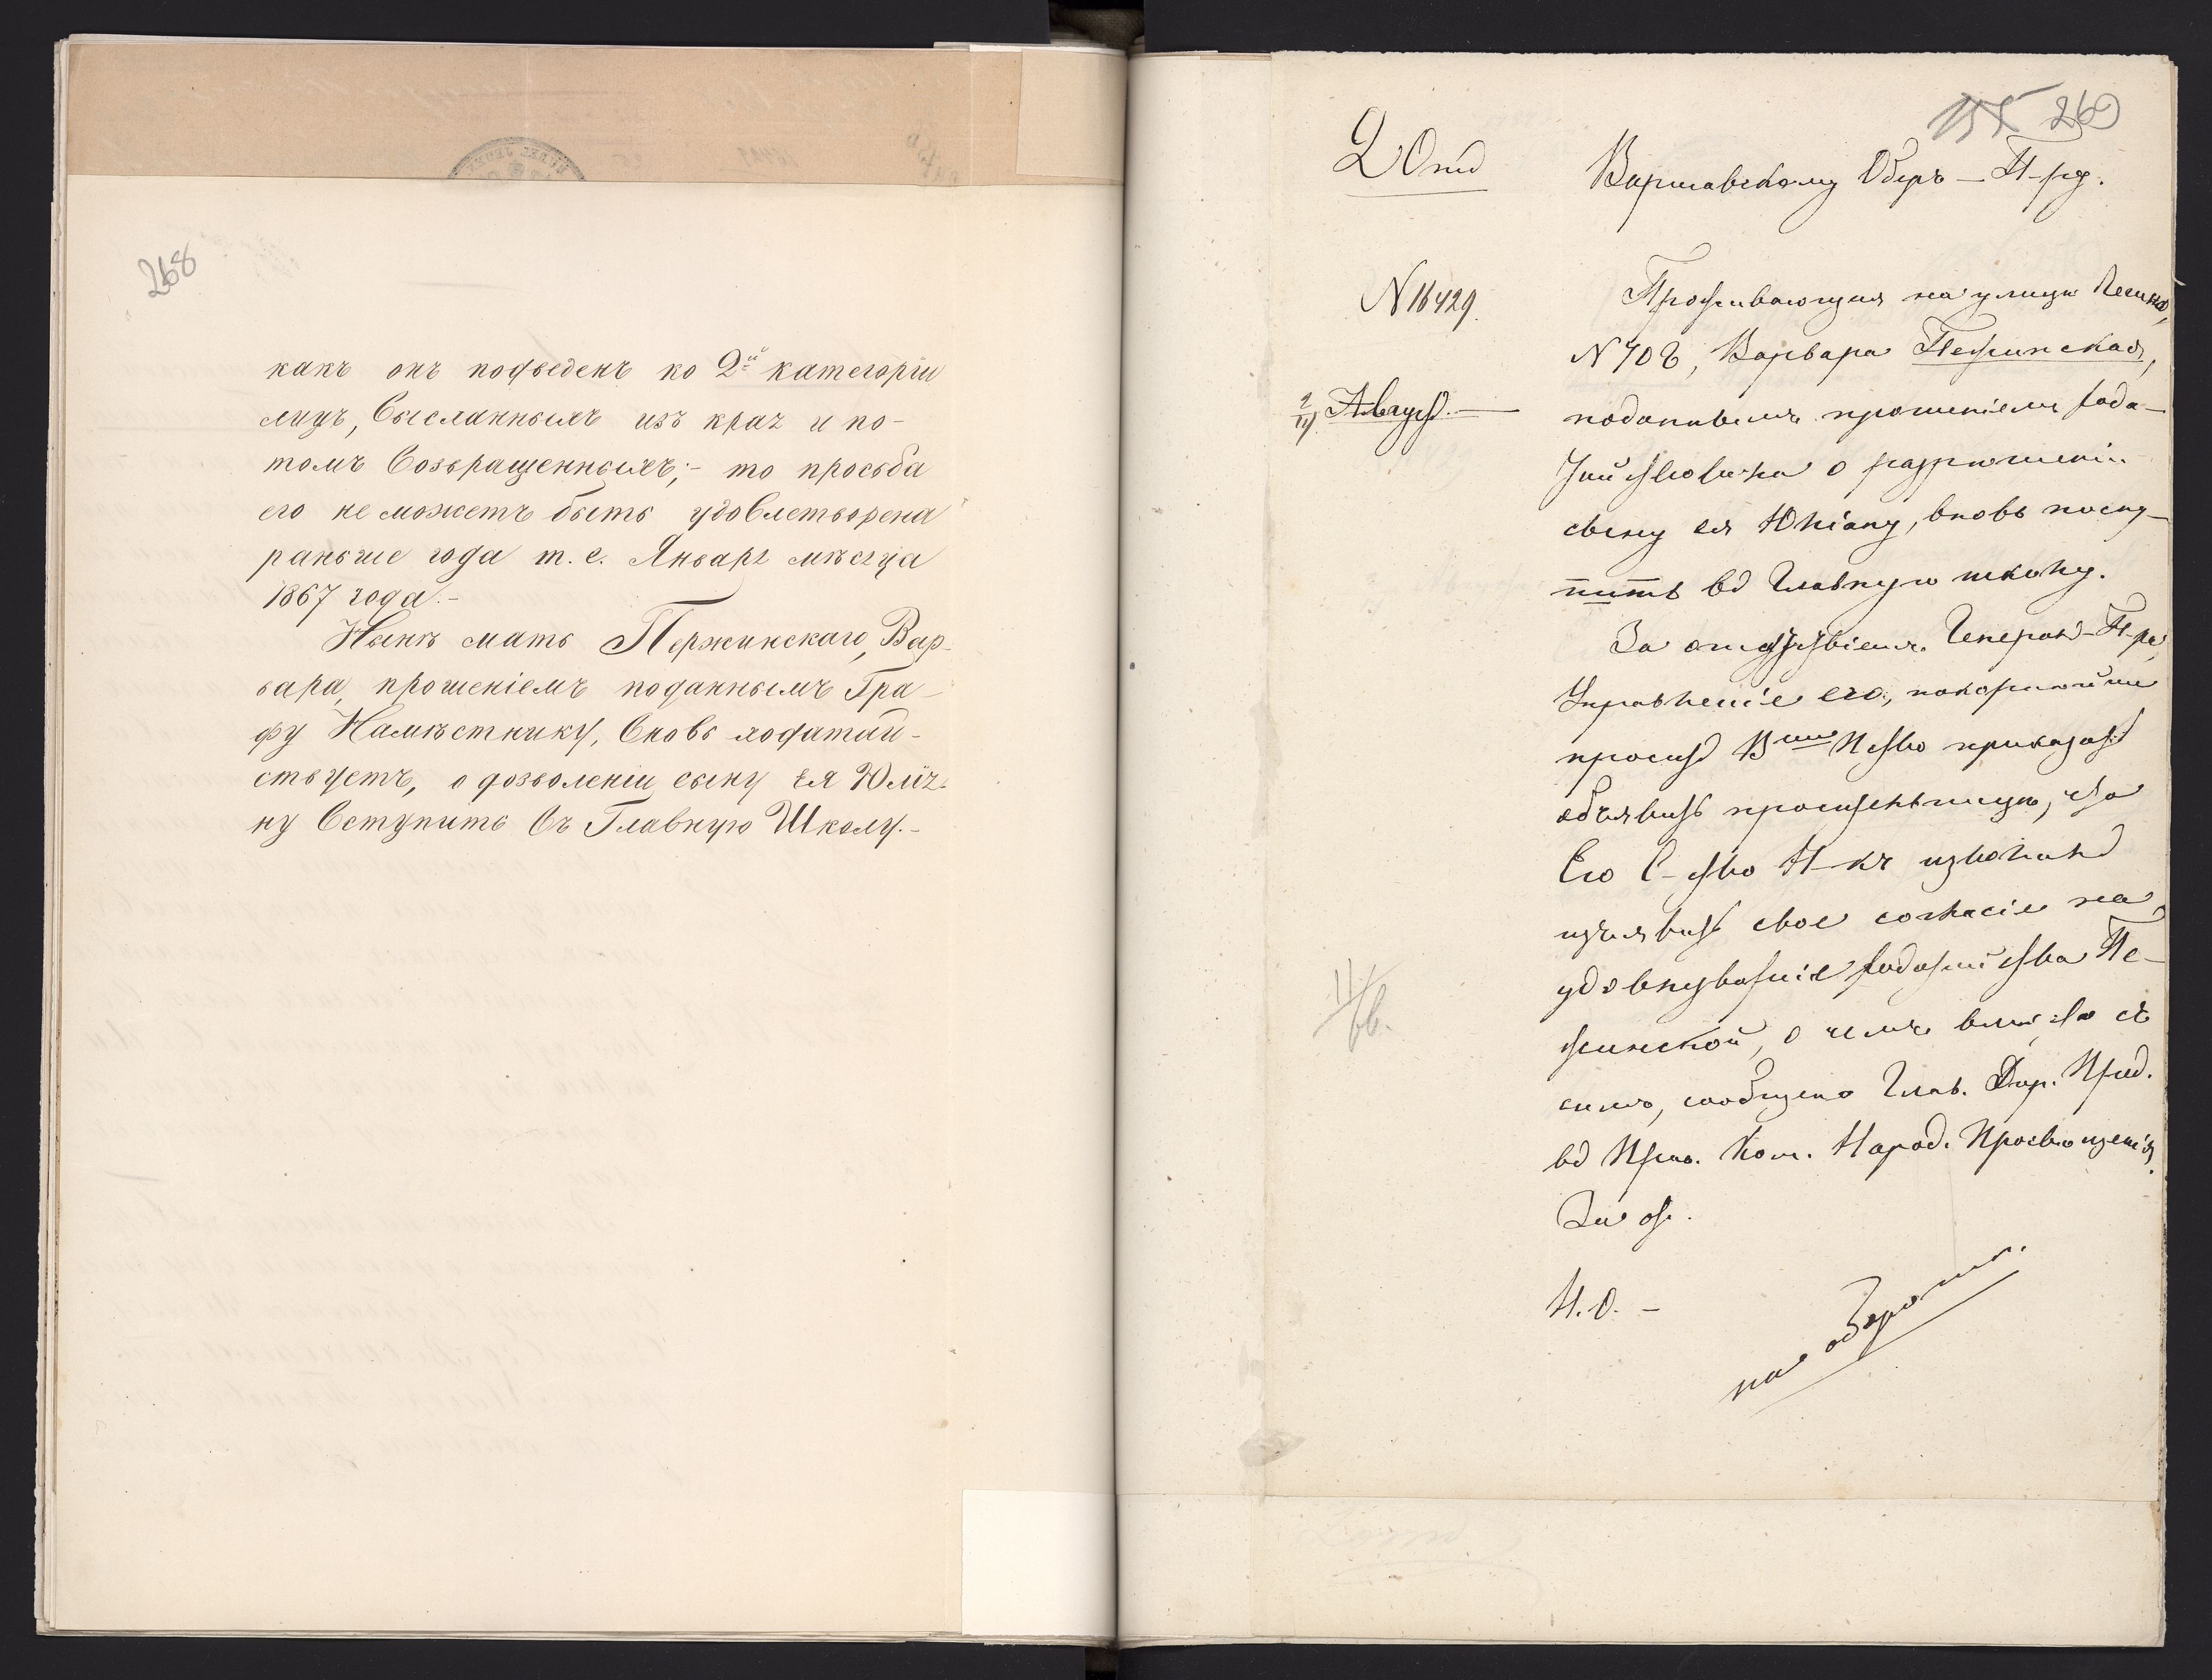 268
какъ онъ подведенъ ко 2й категоріи
лицъ, высланныхъ изъ края и по-
томъ возвращенныхъ;- то просьба
его не можетъ быть удовлетворена
раньше года т. е. Января мѣсяца
1867 года.-
Нынѣ мать Пержинскаго, Вар-
вара, прошеніемъ поданнымъ Гра-
фу Намѣстнику, вновь ходатай-
ствуетъ, о дозволеніи сыну ея Юлія-
ну вступить въ Главную Школу.-
269
2 Отд
Варшавскому Оберъ-П-ру.
N 16429.
Проживающая на улицѣ Лешно,
N 708, Варвара Пежинская,
2/14 Август.
поданнымъ прошеніемъ хода-
тайствовала о разрѣшеніи
сыну ея Юліану, вновь посту-
пить въ Главную школу.
За отсутствіемъ Генералъ-П-ра,
Управленіе его, покорнѣйше
проситъ В П-ство приказать
объявить просительницѣ, что
Его С-ство Н-къ изволилъ
изъявить свое согласіе на
удовлетвореніе ходатайства Пе-
жинской, о чемъ вмѣстѣ съ
симъ, сообщено Глав. Дир. Прид.
въ Прав. Ком. Народ. Просвѣщенія.
За от.
Н. О. -
на оборотѣ